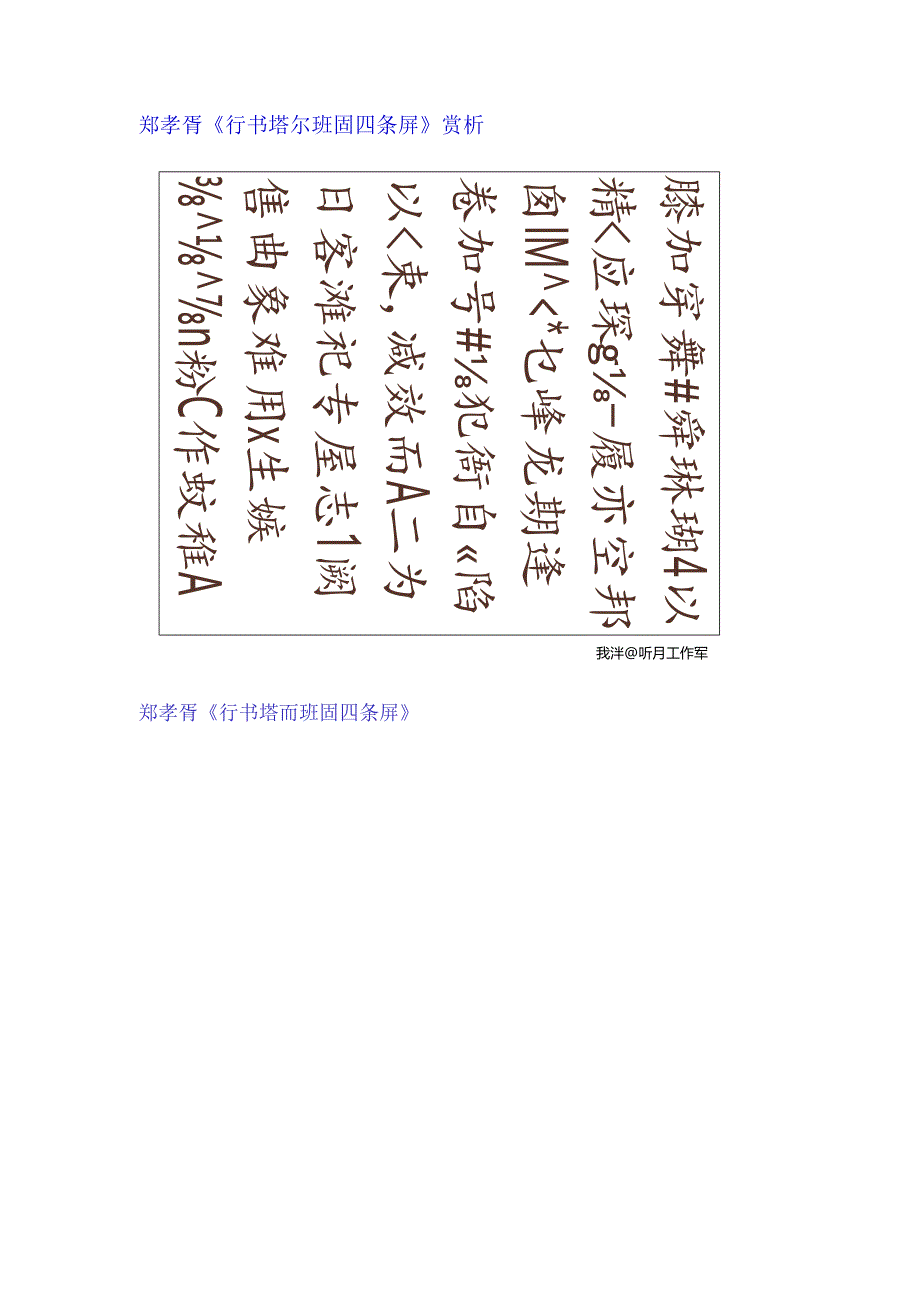 郑孝胥《行书塔尔班固四条屏》赏析
膝加穿舞#舜琳瑚4以
精<应琛g⅛-履亦空邦
囱IM^<*乜峰龙期逢
卷加号#⅛犯衙自«陷
以<束,减效而A二为
日客滩祀专屋志1阙
售曲象难用x生嫉
⅜^⅛^⅞n粉C作蚊稚A
我泮@听月工作军
郑孝胥《行书塔而班固四条屏》